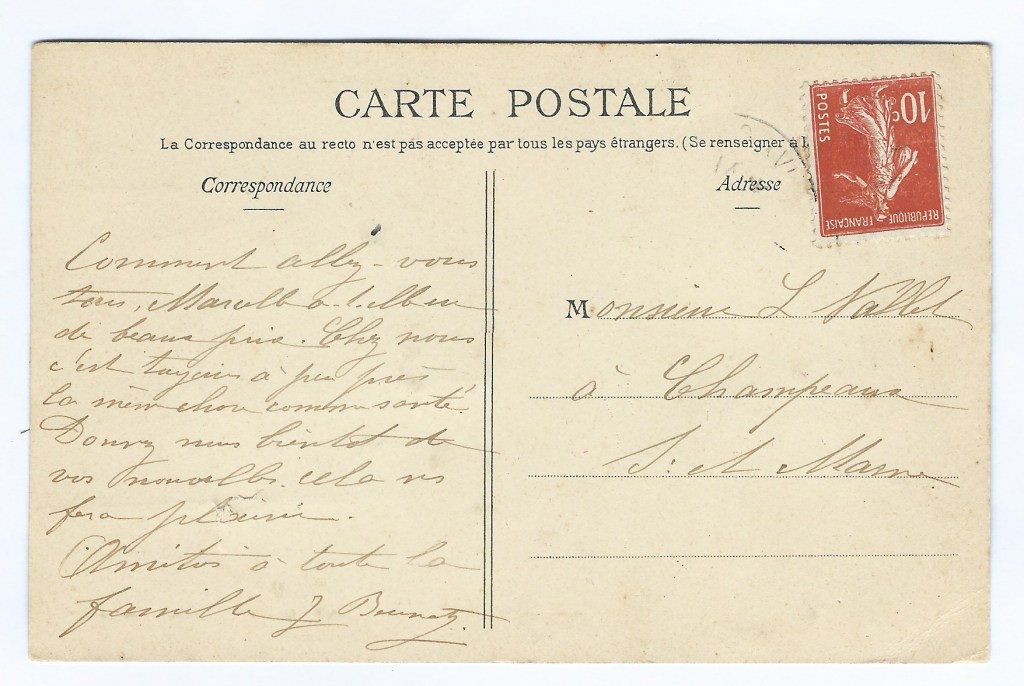 CARTE POSTALE
La Correspondance au recto n'est pas acceptée par tous les pays étrangers. (Se renseigner à l
Correspondance
Comment allez-vous
tous, Marcelle a-t-elle eu
de beaux prix. Chez nous
c'est toujours à peu près
la même chose comme santé.
Donnez nous bientôt de
vos nouvelles. cela ns
fera plaisir.
Amitiés à toute la
famille J
Adresse
Monsieur L Vallet
à Champeaux
S. et Marne
10c
POSTES
REPUBLIQUE FRANÇAISE